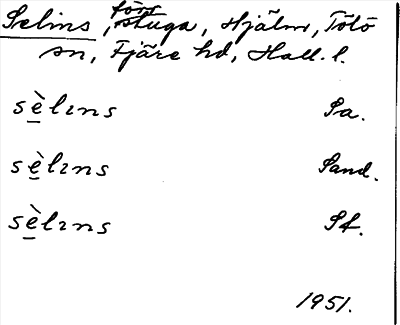 Selins, förr stuga, Hjälm, Tölö
sn, Fjäre hd, Hall. l.
sè̱lıns Sa.
sè̱lıns Sand.
sè̱lıns St.
1951.